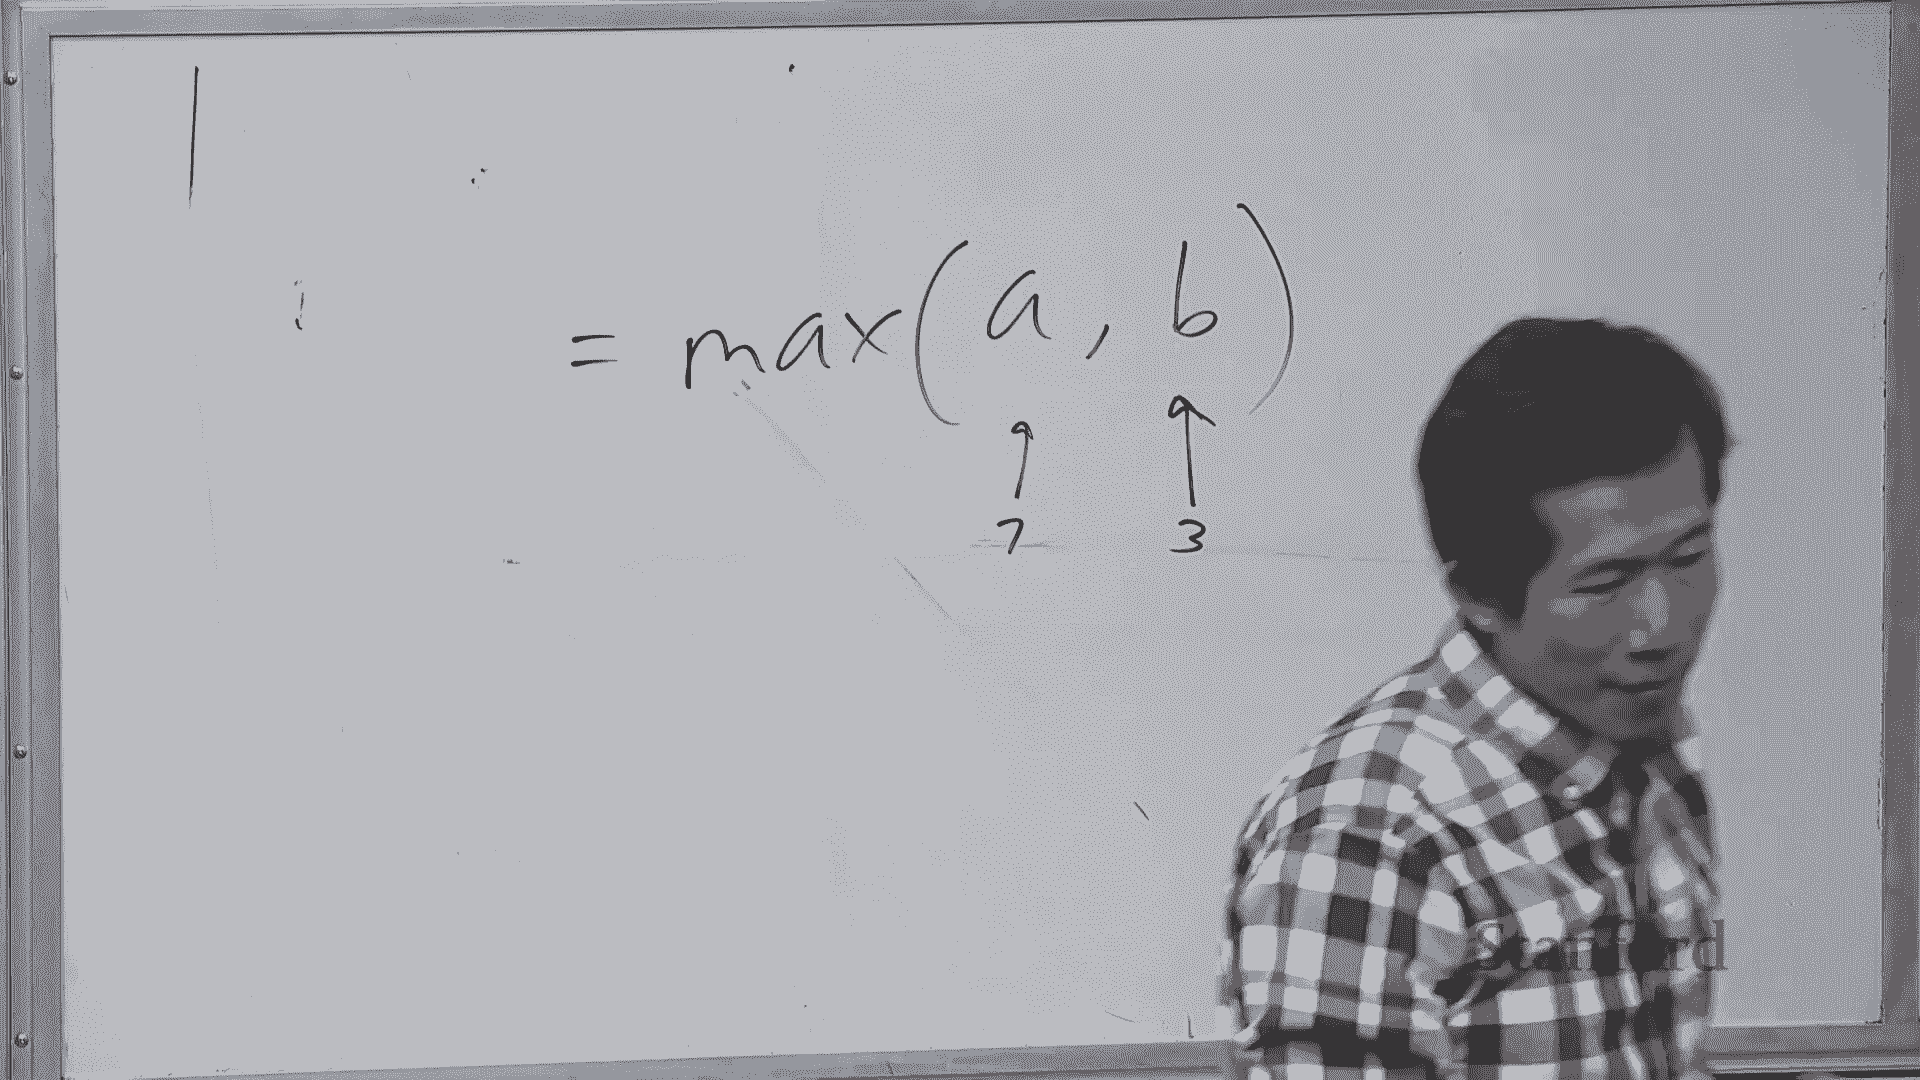 = max(a, b)
7 3
Stanford